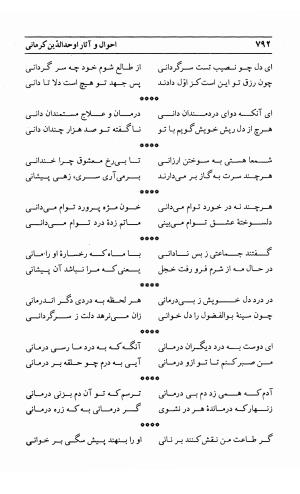 ۷۹۲ احوال و آثار اوحدالدین کرمانی
ای دل چو نصیب تست سرگردانی از طالع شوم خود چه سر گردانی
چون رزق تو این است کز اوّل دادند پس جهد تو هیچ است دلا تا دانی
****
ای آنکه دوای دردمندان دانی درمان و علاج مستمندان دانی
هرچ از دل ریش خویش گویم با تو ناگفته تو صد هزار چندان دانی
****
شمعا هستی به سوختن ارزانی تا بی‌رخ معشوق چرا خندانی
هرچند سرت به گاز بر می‌دارند برمی‌آری سری، زهی پیشانی
****
هرچند نه در خورد توام می‌دانی خون مژه پرورد توام می‌دانی
دلسوختهٔ عشق توام می‌بینی ماتم زدهٔ درد توام می‌دانی
****
گفتند جماعتی ز بس نادانی با ماه که رخسارهٔ او را مانی
در حال مه از شرم فرو رفت خجل یعنی که مرا نباشد آن پیشانی
****
در درد دل خویش ز بی‌درمانی هر لحظه به دردی دگر اندرمانی
چون سینهٔ بوالفضول را دل خوانی زان می‌نرهد دلت ز سرگردانی
****
ای دوست به درد دیگران درمانی آنگه که به درد ما رسی درمانی
من صبر کنم تا تو ازو درمانی آیی به درم چو حلقه بر درمانی
****
آدم که همی زد دم بی درمانی ترسم که تو آن دم بزنی درمانی
زنهار که درماندهٔ هر در نشوی گر درمانی به که زره درمانی
****
گر طاعت من نقش کنند بر نانی او را بنهند پیش سگی بر خوانی